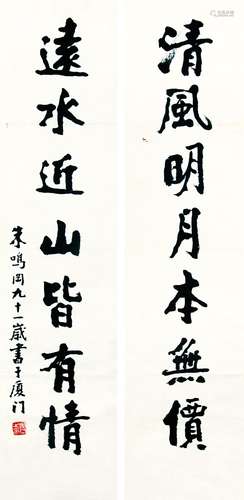 清風明月本無價
遠水近山皆有情
朱鳴岡九十一歲書于厦门